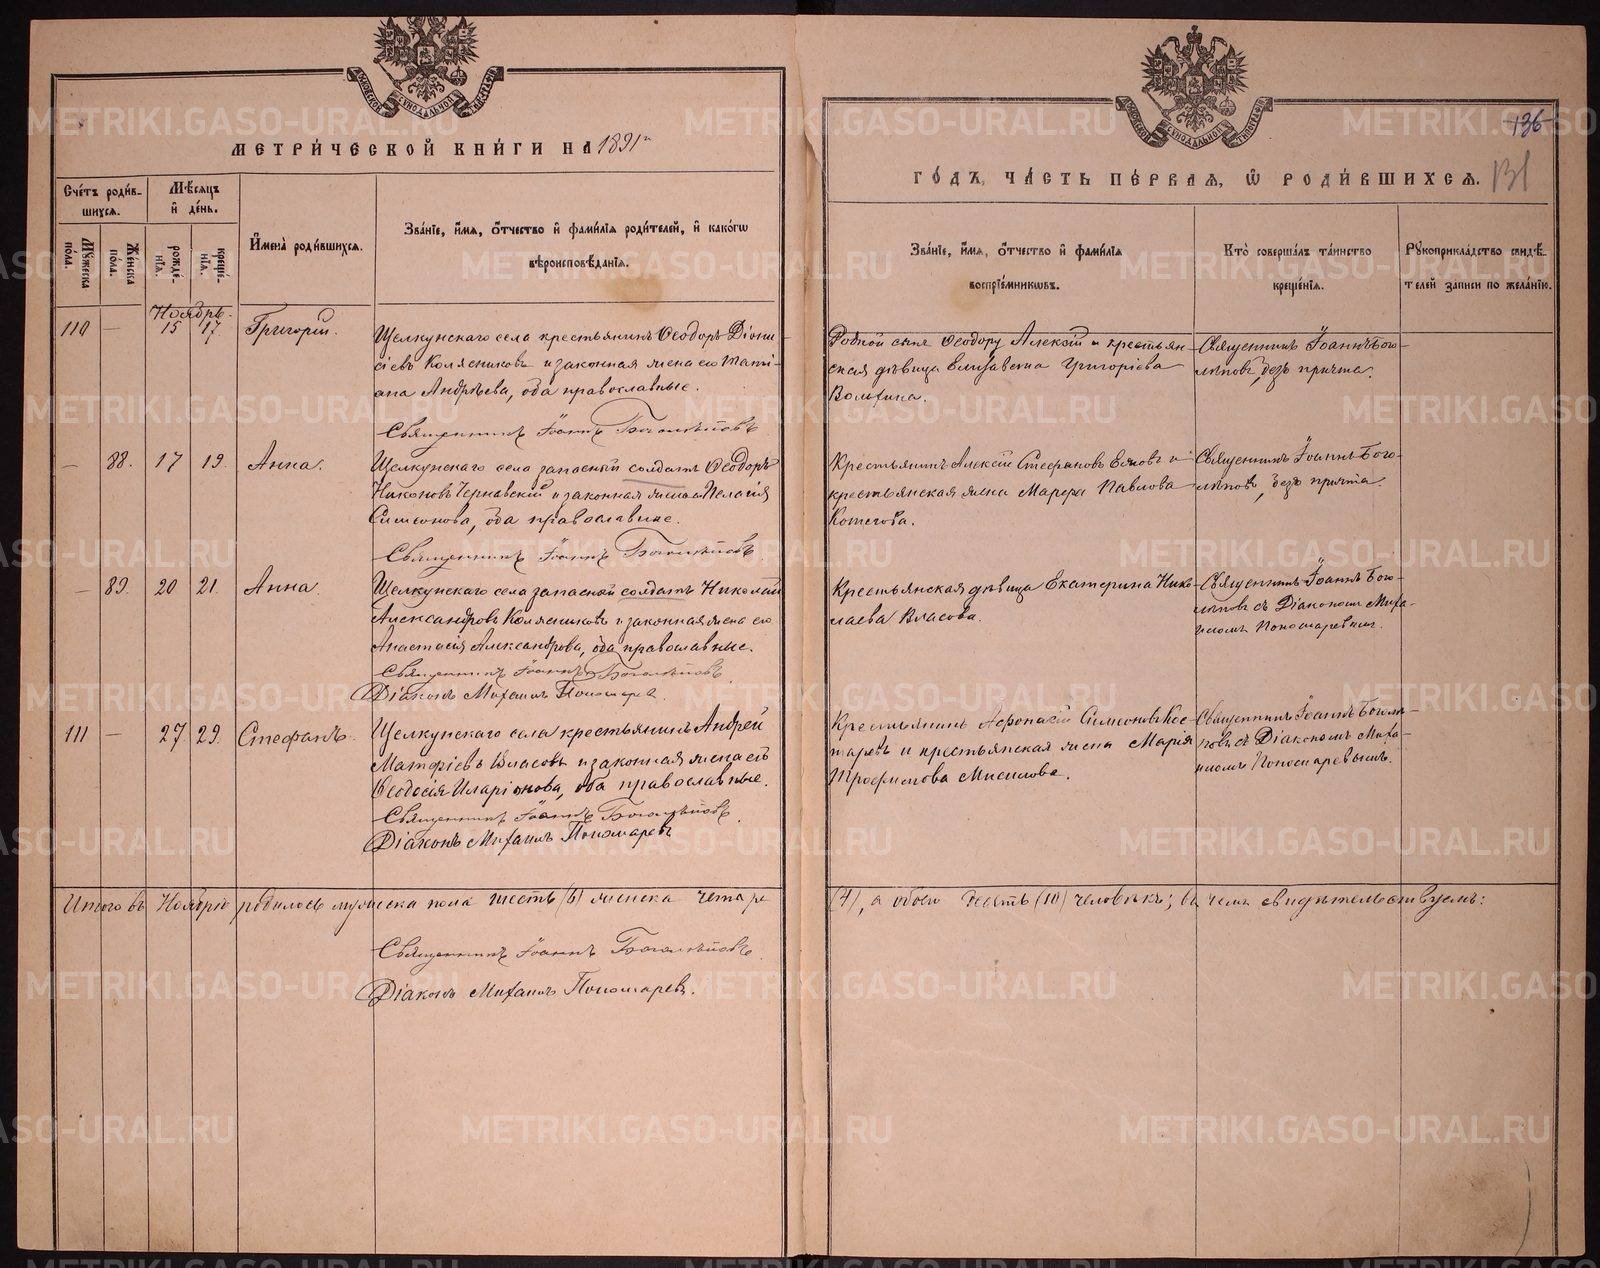 МОСКОВСКОЙ СѴНОДАЛЬНОЙ ТИПОГРАФІИ
МЕТРИ́ЧЕСКОЙ КНИ́ГИ НА 1891 г.
Сче́тъ роди́в-
шихсѧ.
Мѣ́сѧцъ
и҆ де́нь.
Мꙋ́жеска
по́ла.
Же́нска
по́ла.
рожде́-
нїѧ.
креще́-
нїѧ.
И҆мена̀ роди́вшихсѧ.
Зва́нїе, и҆́мѧ, ѻ҆́тчество и҆ фами́лїѧ роди́телей, и҆ како́гѡ
вѣроисповѣ́данїѧ.
Ноябрь.
110 — 15 17. Григорій.
Щелкунскаго села крестьянинъ Ѳеодоръ Діони-
сіевъ Колясниковъ и законная жена его Тати-
ана Андрѣева, оба православные.
Священникъ Іоаннъ Боголѣповъ
— 88. 17 19. Анна.
Щелкунскаго села запасный солдатъ Ѳеодоръ
Никоновъ Чернавскій и законная жена Пелагія
Симеонова, оба православные.
Священникъ Іоаннъ Боголѣповъ
— 89. 20 21. Анна.
Щелкунскаго села запасной солдатъ Николай
Александровъ Колясниковъ и законная жена его
Анастасія Александрова, оба православные.
Священникъ Іоаннъ Боголѣповъ.
Діаконъ Михаилъ Пономарев.
111 — 27. 29. Стефанъ.
Щелкунскаго села крестьянинъ Андрей
Матфіевъ Власовъ и законная жена его
Ѳеодосія Иларіонова, оба православные.
Священникъ Іоаннъ Боголѣповъ.
Діаконъ Михаилъ Пономаревъ
Итого въ Ноябрѣ родилось мужеска пола шесть (6) женска четыре
Священникъ Іоаннъ Боголѣповъ.
Діаконъ Михаилъ Пономаревъ.
МОСКОВСКОЙ СѴНОДАЛЬНОЙ ТИПОГРАФІИ
136
ГО́ДЪ, ЧА́СТЬ ПЕ́РВАѦ, Ѡ҆ РОДИ́ВШИХСѦ. 131
Зва́нїе, и҆́мѧ, ѻ҆́тчество и҆ фами́лїѧ
воспрїе́мникѡвъ.
Кто̀ соверша́лъ та́инство
креще́нїѧ.
Рꙋкоприкла́дство свидѣ́-
телей записи по жела́нїю.
Родной сынъ Ѳеодору Алексій и крестьян-
ская дѣвица Елизавета Григоріева
Волхина.
Священникъ Іоаннъ Бого-
лѣповъ, безъ причта.
Крестьянинъ Алексій Стефановъ и
крестьянская жена Марѳа Павлова
Котегова.
Священникъ Іоаннъ Бого-
лѣповъ, безъ причта.
Крестьянская дѣвица Екатерина Нико-
лаева Власова.
Священникъ Іоаннъ Бого-
лѣповъ съ Діакономъ Миха-
иломъ Пономаревым.
Крестьянинъ Аѳонасій Симеоновъ Кос-
таревъ и крестьянская жена Марія
Трофимова Мисилова.
Священникъ Іоаннъ Боголѣ-
повъ съ Діакономъ Миха-
иломъ Пономаревымъ.
(4), а обоего десять (10) человѣкъ; въ чемъ свидѣтельствуемъ:
METRIKI.GASO-URAL.RU